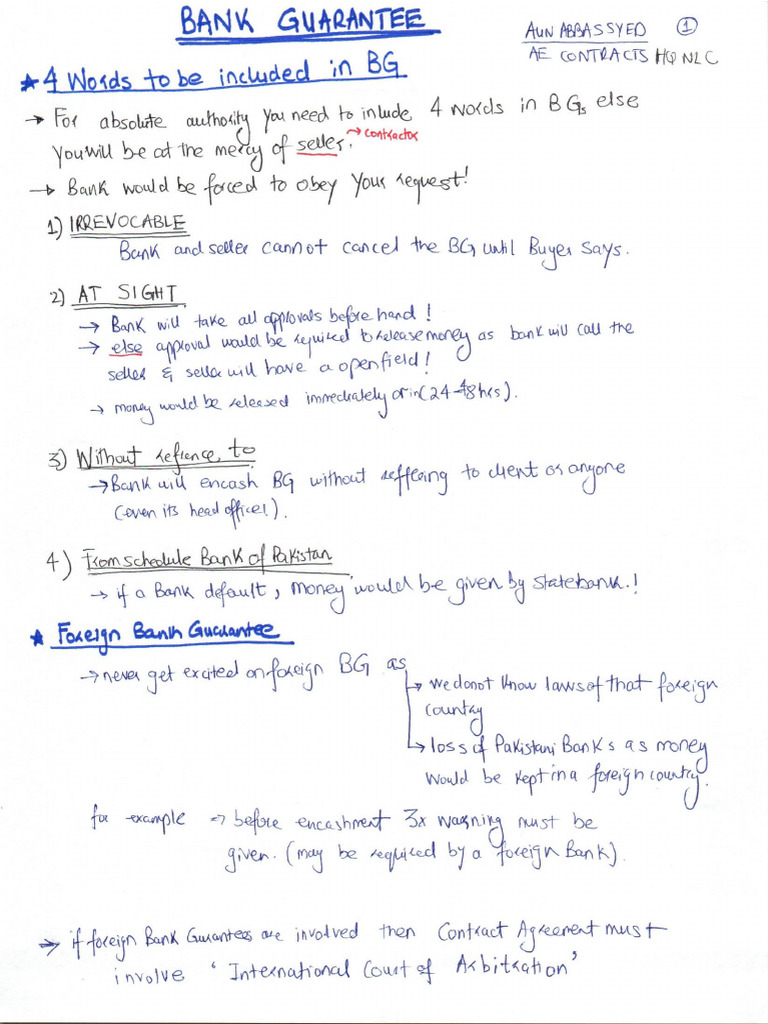 BANK GUARANTEE
AUN ABBAS SYED
1
AE CONTRACTS HQ NLC
★ 4 Words to be included in BG
→ For absolute authority you need to inlude 4 words in BGs else
You will be at the mercy of seller.
→ contractor
→ Bank would be forced to obey your request!
1) IRREVOCABLE
Bank and seller cannot cancel the BG until Buyer says.
2) AT SIGHT
→ Bank will take all approvals before hand!
→ else approval would be required to release money as bank will call the
seller & seller will have a open field!
→ money would be released immediately or in (24-48 hrs).
3) Without refrence to
→ Bank will encash BG without reffering to client or anyone
(even its head office!).
4) From schedule Bank of Pakistan
→ if a Bank default, money would be given by state bank.!
★ Foreign Bank Guarantee
→ never get excited on foreign BG as
→ we do not know laws of that foreign
country
→ loss of Pakistani Banks as money
would be kept in a foreign country.
for example → before encashment 3x warning must be
given. (may be required by a foreign Bank).
→ if foreign Bank Gurantees are involved then Contract Agreement must
involve ‘International Court of Arbitration’